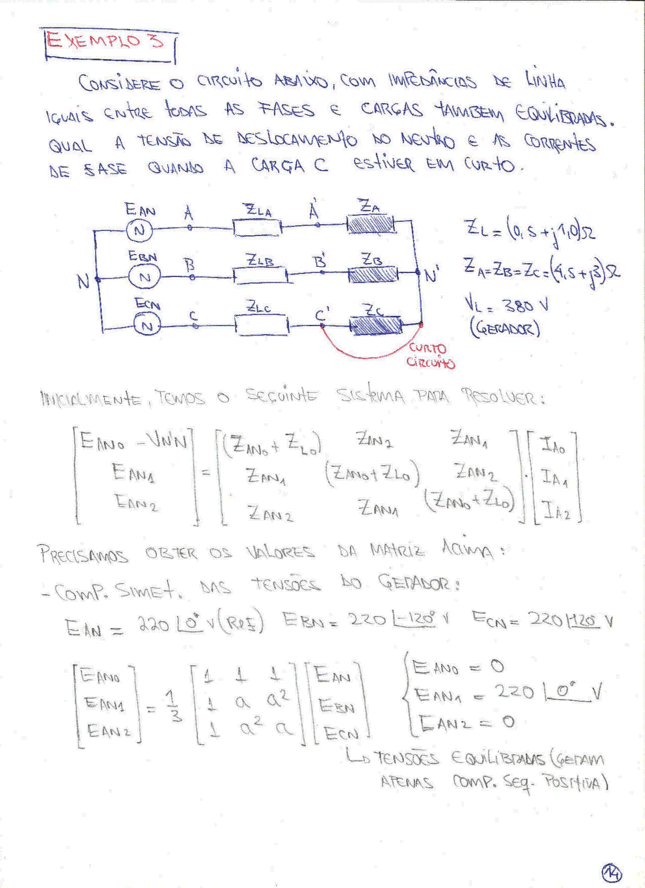 EXEMPLO 3
CONSIDERE O CIRCUITO ABAIXO, COM IMPEDÂNCIAS DE LINHA
IGUAIS ENTRE TODAS AS FASES E CARGAS TAMBEM EQUILIBRADAS.
QUAL A TENSÃO DE DESLOCAMENTO DO NEUTRO E AS CORRENTES
DE FASE QUANDO A CARGA C ESTIVER EM CURTO.
EAN A ZLA A' ZA
N
EBN B ZLB B' ZB
N N N'
ECN C ZLC C' ZC
N
CURTO
CIRCUITO
ZL = (0,5 + j1,0)Ω
ZA=ZB=ZC=(4,5+j3)Ω
VL = 380 V
(GERADOR)
INICIALMENTE, TEMOS O SEGUINTE SISTEMA PARA RESOLVER:
[EAN0 - VNN] = [(ZAN0 + ZL0) ZAN2 ZAN1] . [IA0]
[EAN1] [ZAN1 (ZAN0+ZL0) ZAN2] [IA1]
[EAN2] [ZAN2 ZAN1 (ZAN0+ZL0)] [IA2]
PRECISAMOS OBTER OS VALORES DA MATRIZ ACIMA:
- COMP. SIMET. DAS TENSÕES DO GERADOR:
EAN = 220 ∠0° V (REF) EBN = 220 ∠-120° V ECN = 220 ∠120° V
[EAN0] = 1/3 [1 1 1] [EAN] { EAN0 = 0
[EAN1] [1 a a²] [EBN] EAN1 = 220 ∠0° V
[EAN2] [1 a² a] [ECN] EAN2 = 0
↳ TENSÕES EQUILIBRADAS (GERAM
APENAS COMP. SEQ. POSITIVA)
14